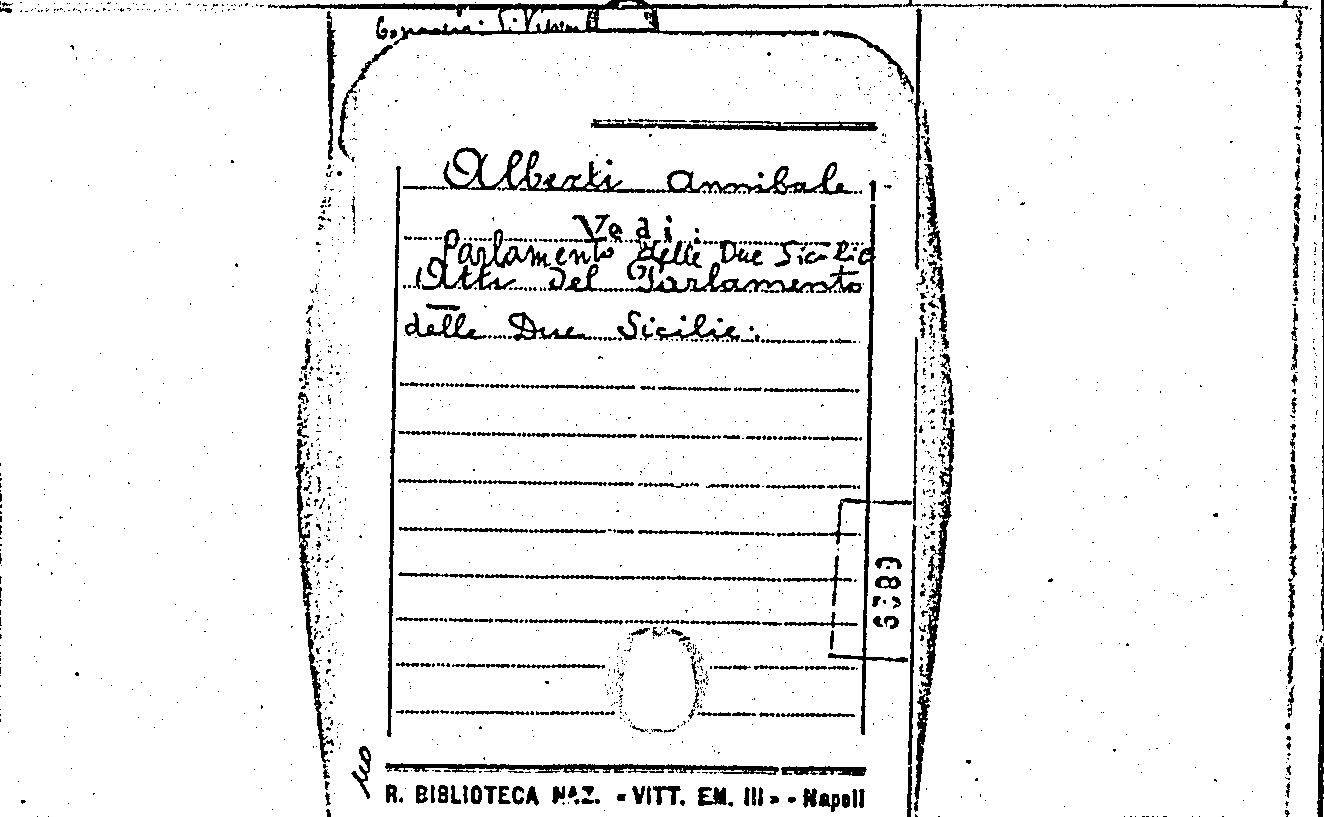 Alberti Annibale
Vedi:
Parlamento delle Due Sicilie
Atti del Parlamento
delle Due Sicilie.
R. BIBLIOTECA NAZ. «VITT. EM. III» - Napoli